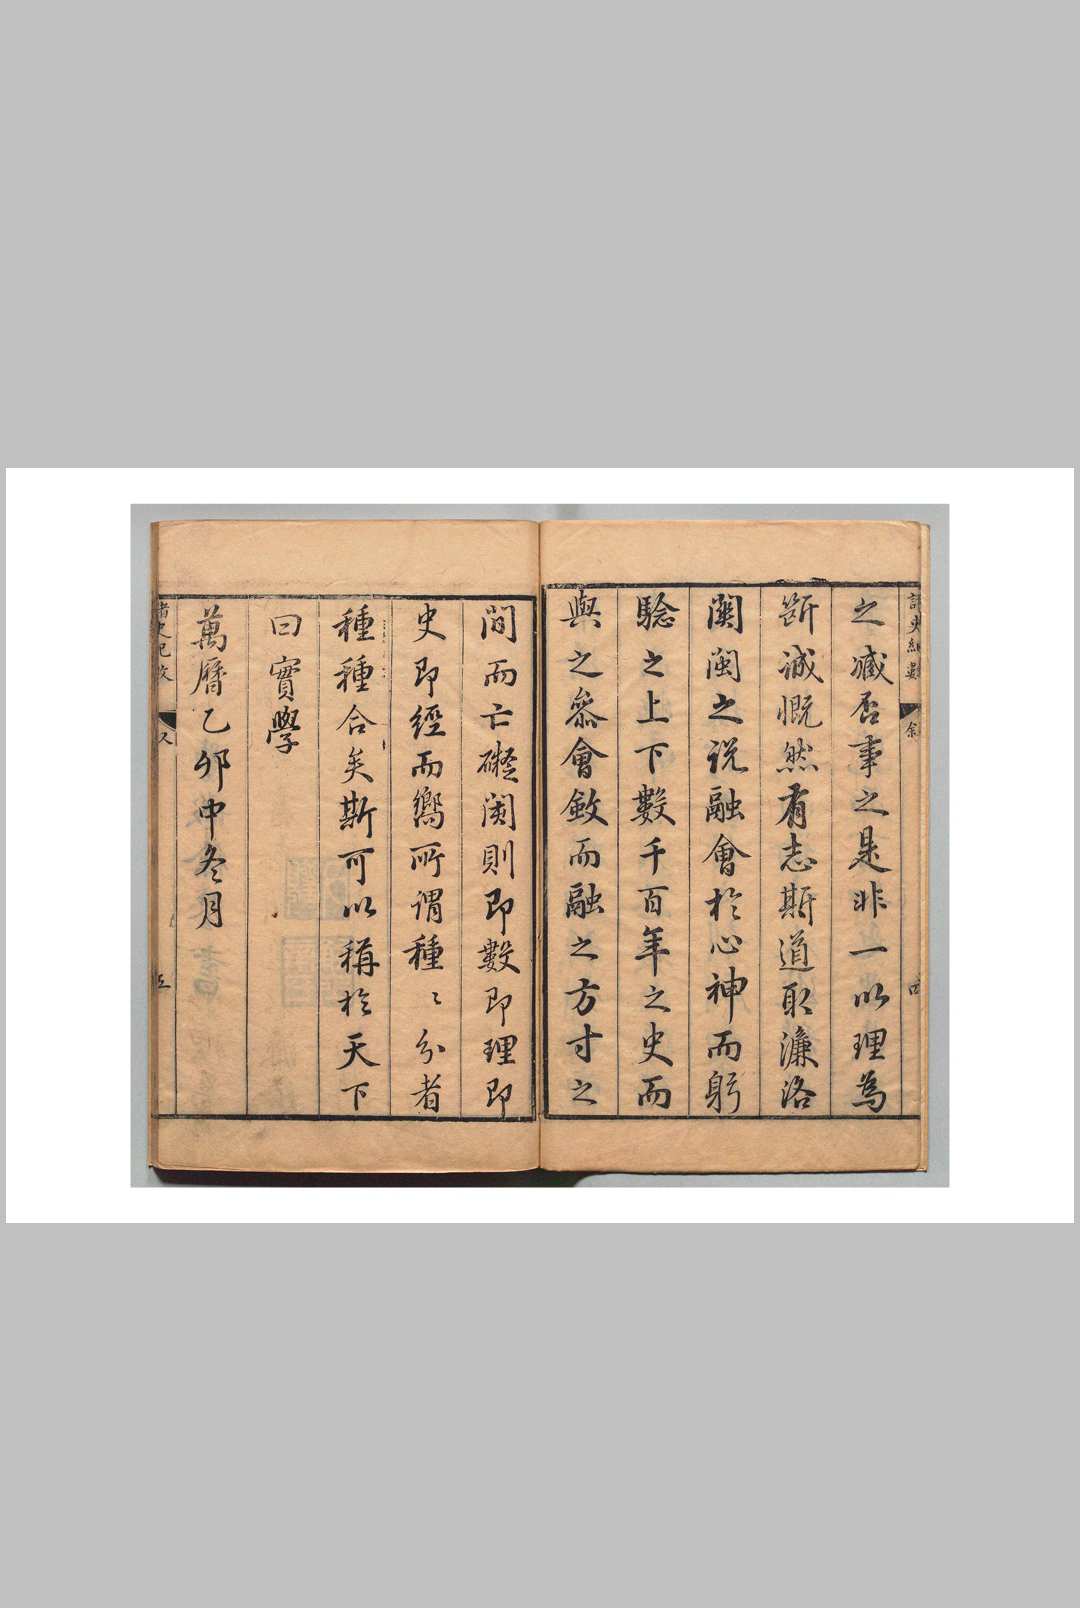 之臧否事之是非一以理為
斷誠慨然有志斯道取濂洛
關閩之説融會於心神而躬
驗之上下數千百年之史而
與之參會敛而融之方寸之
間而亡礙閡則即數即理即
史即經而嚮所謂種〻分者
種種合矣斯可以稱於天下
曰實學
萬曆乙卯中冬月